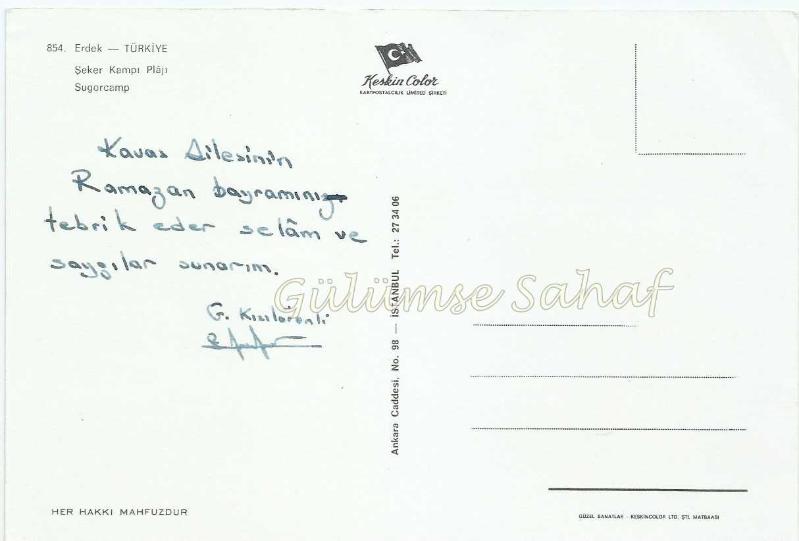 854. Erdek — TÜRKİYE
Şeker Kampı Plâjı
Sugorcamp
Keskin Color
KARTPOSTALCILIK LİMİTED ŞİRKETİ
Kavas Ailesinin
Ramazan bayramını
tebrik eder selâm ve
saygılar sunarım.
G.
Ankara Caddesi. No. 98 — İSTANBUL Tel.: 27 34 06
Gülümse Sahaf
HER HAKKI MAHFUZDUR
GÜZEL SANATLAR - KESKİNCOLOR LTD. ŞTİ. MATBAASI